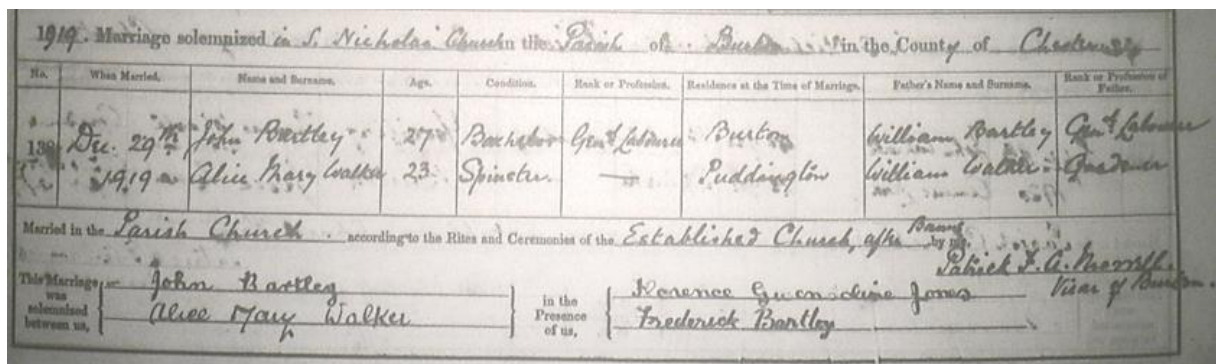 1919. Marriage solemnized in S. Nicholas Church in the Parish of Burton in the County of Chester
No. When Married. Name and Surname. Age. Condition. Rank or Profession. Residence at the Time of Marriage. Father's Name and Surname. Rank or Profession of Father.
138 Dec. 29th John Bartley 27 Bachelor Genl Labourer Burton William Bartley Genl Labourer
1919 Alice Mary Walker 23 Spinster — Puddington William Walker Gardener
Married in the Parish Church according to the Rites and Ceremonies of the Established Church, after Banns by me,
Patrick F. A.
Vicar of Burton.
This Marriage was solemnized between us, John Bartley
Alice Mary Walker
in the Presence of us, Florence Gwendoline Jones
Frederick Bartley